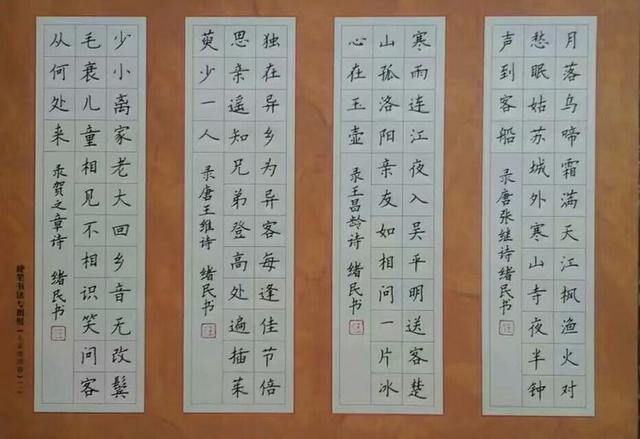 月落乌啼霜满天江枫渔火对
愁眠姑苏城外寒山寺夜半钟
声到客船 录唐张继诗绪民书
寒雨连江夜入吴平明送客楚
山孤洛阳亲友如相问一片冰
心在玉壶 录王昌龄诗 绪民书
独在异乡为异客每逢佳节倍
思亲遥知兄弟登高处遍插茱
萸少一人 录唐王维诗 绪民书
少小离家老大回乡音无改鬓
毛衰儿童相见不相识笑问客
从何处来 录贺之章诗 绪民书
硬笔书法专用纸